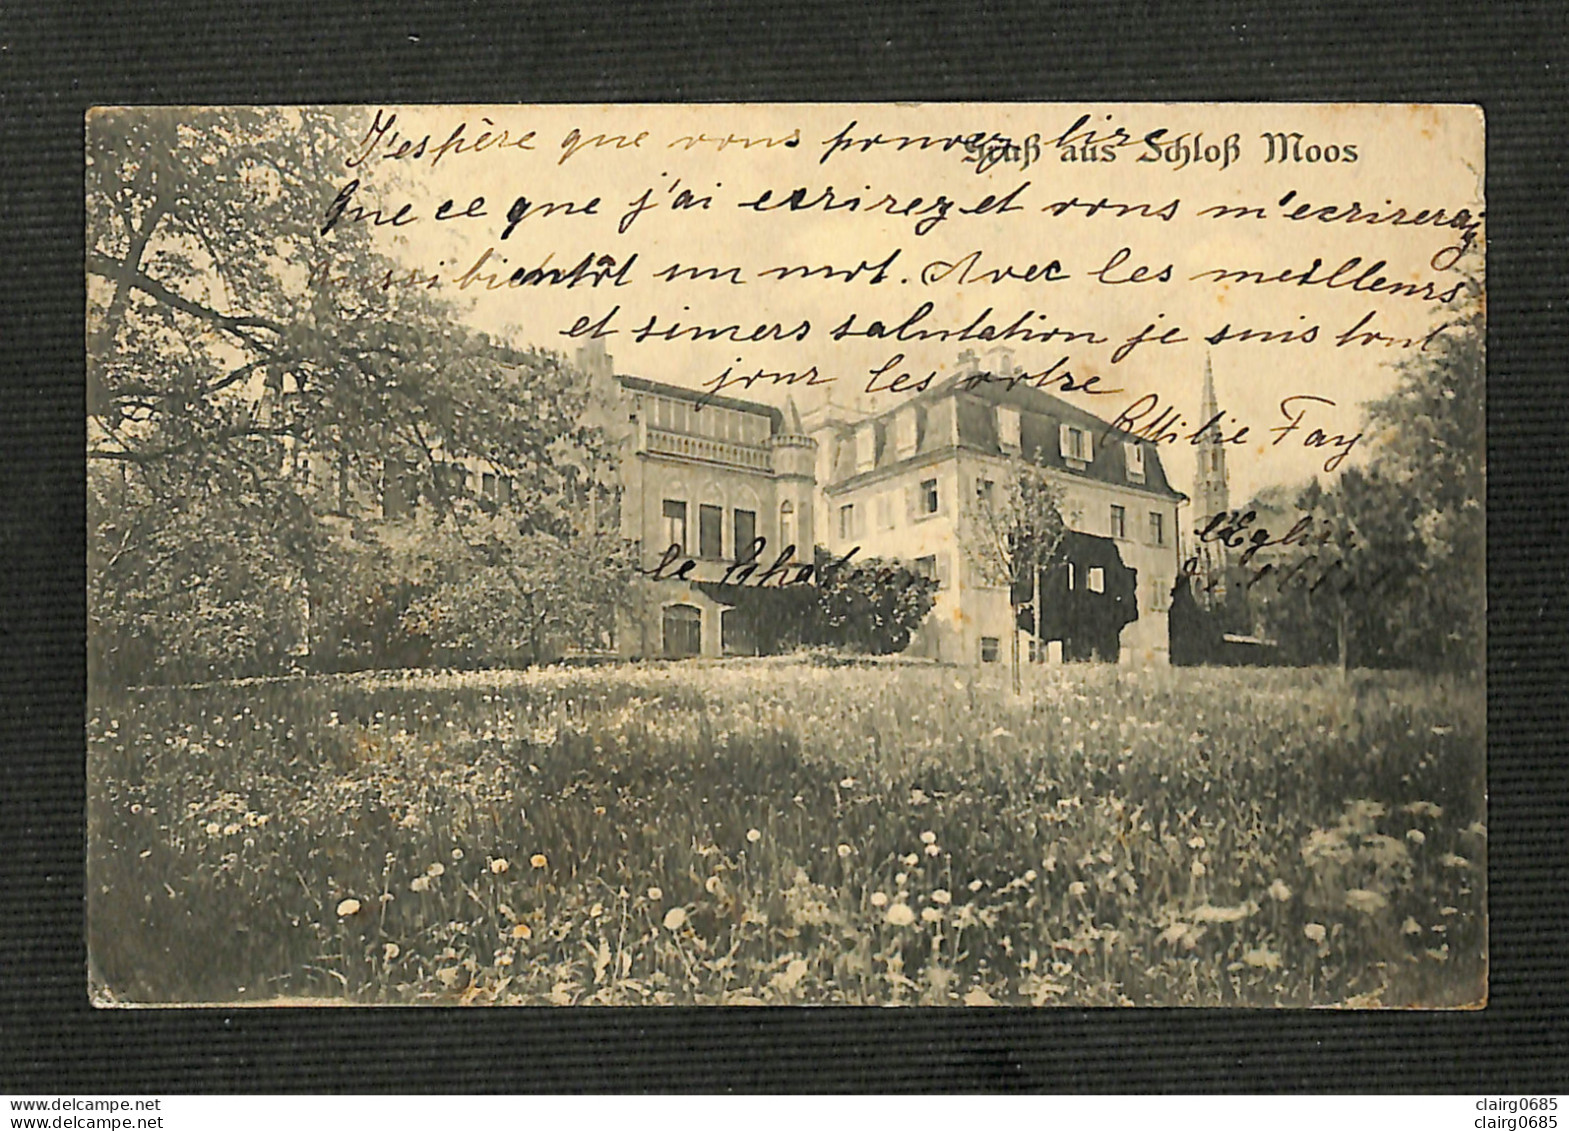 J'espère que vous pouvez lire
Gruß aus Schloß Moos
Que ce que j'ai ecrirez et vous m'ecrireraz
aussibientôt un mot. Avec les meilleurs
et simers salutation je suis tout
jour les votre
Ottilie Fay
l'Eglise
le Chateau
www.delcampe.net
clairg0685
www.delcampe.net
clairg0685